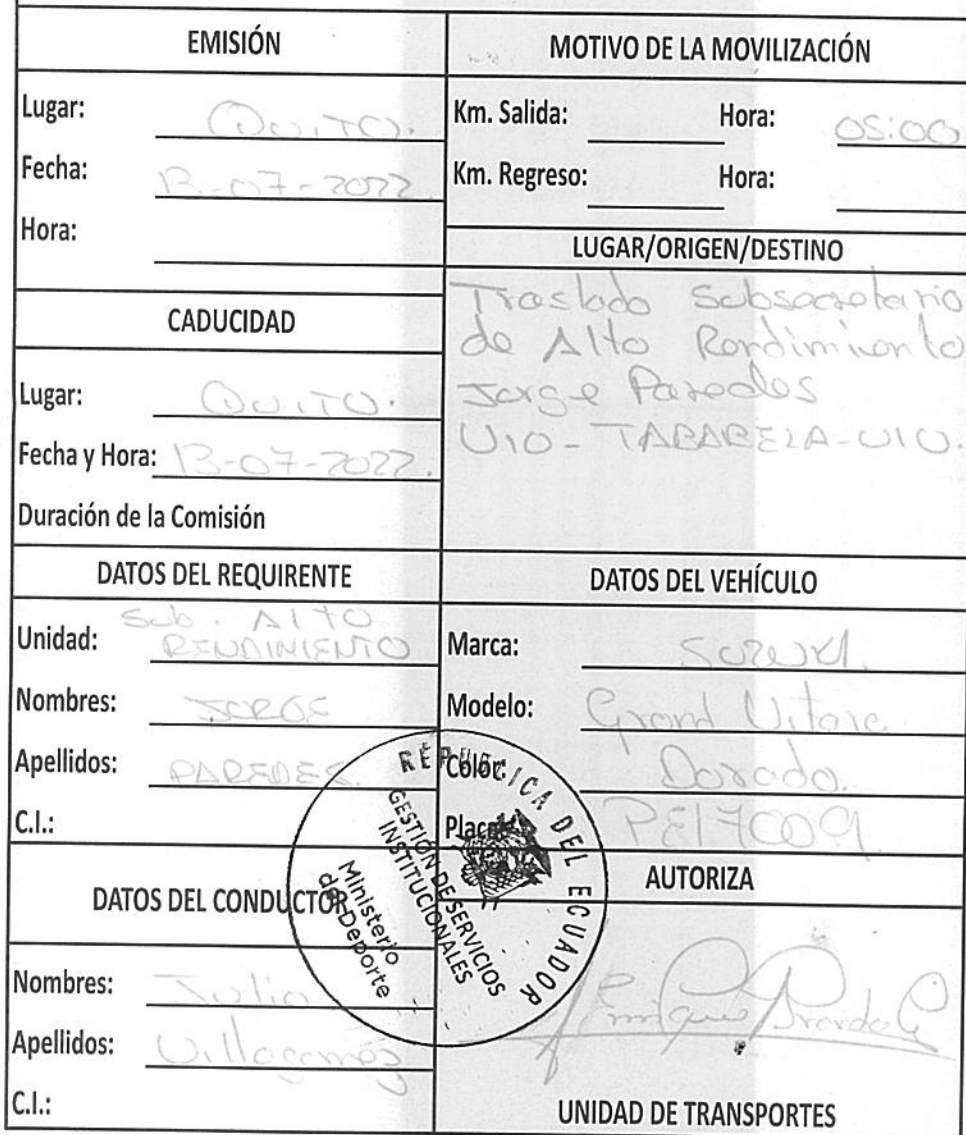 EMISIÓN
Lugar: QUITO.
Fecha: 13-07-2022
Hora:
CADUCIDAD
Lugar: QUITO.
Fecha y Hora: 13-07-2022.
Duración de la Comisión
DATOS DEL REQUIRENTE
Unidad: Sub. ALTO
RENDIMIENTO
Nombres: JORGE
Apellidos: PAREDES
C.I.:
DATOS DEL CONDUCTOR
Nombres: Julio
Apellidos: Villagomez
C.I.:
MOTIVO DE LA MOVILIZACIÓN
Km. Salida: Hora: 05:00
Km. Regreso: Hora:
LUGAR/ORIGEN/DESTINO
Traslado Subsecretario
de Alto Rendimiento
Jorge Paredes
UIO - TABABELA - UIO.
DATOS DEL VEHÍCULO
Marca: Suzuki.
Modelo: Grand Vitara
Color: Dorado.
Placa: PEI7009
AUTORIZA
UNIDAD DE TRANSPORTES
REPÚBLICA DEL ECUADOR
GESTIÓN DE SERVICIOS
INSTITUCIONALES
Ministerio
del Deporte